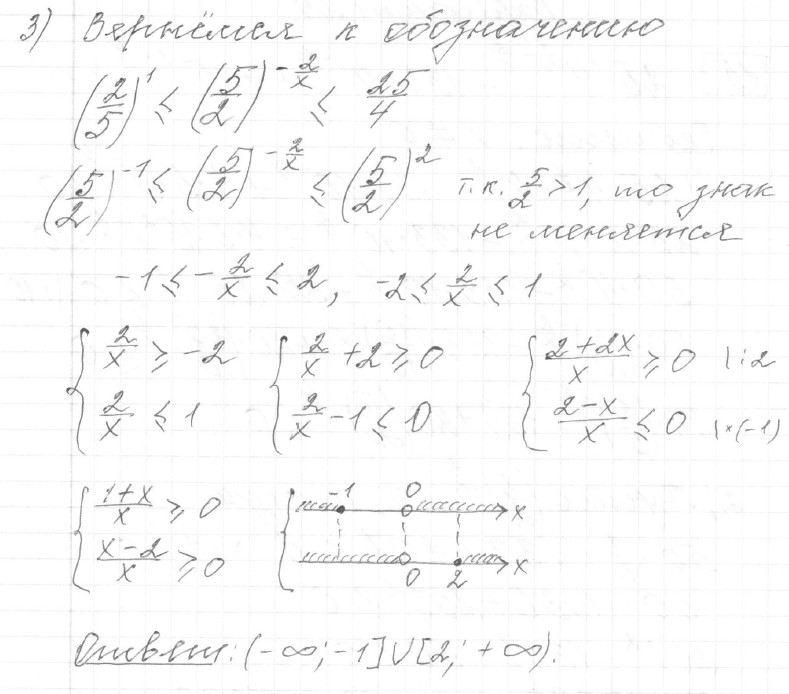 3) Вернёмся к обозначению
(2/5)^1 ≤ (5/2)^(-2/x) ≤ 25/4
(5/2)^(-1) ≤ (5/2)^(-2/x) ≤ (5/2)^2 т.к. 5/2 > 1, то знак
не меняется
-1 ≤ -2/x ≤ 2, -2 ≤ 2/x ≤ 1
{ 2/x ≥ -2 { 2/x + 2 ≥ 0 { (2+2x)/x ≥ 0 |:2
2/x ≤ 1 2/x - 1 ≤ 0 (2-x)/x ≤ 0 |×(-1)
{ (1+x)/x ≥ 0 { -1 0 x
(x-2)/x ≥ 0 0 2 x
Ответ: (-∞; -1]∪[2; +∞).